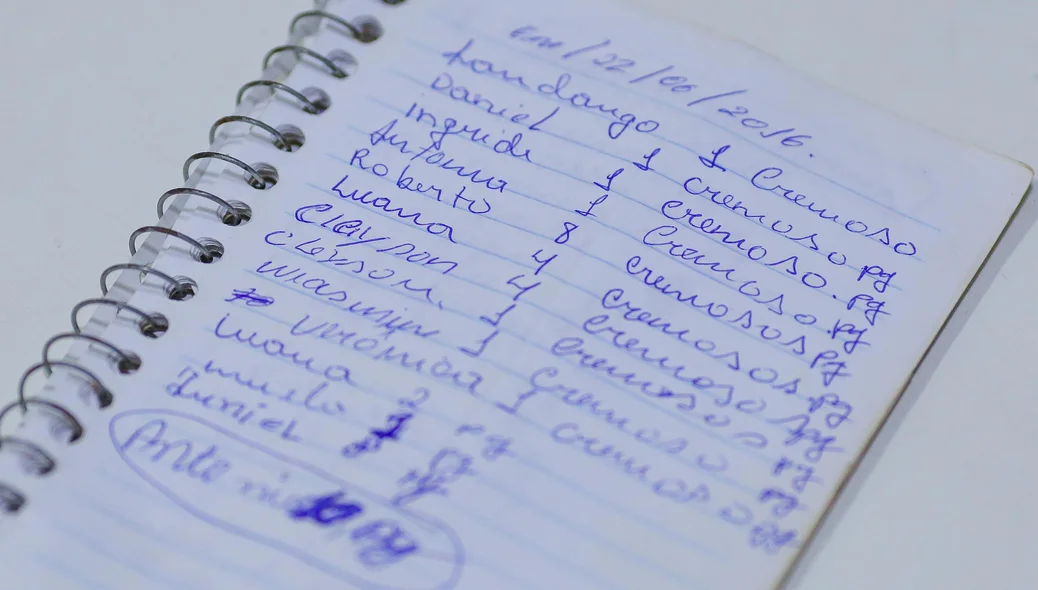 em/22/06/2016.
Fandango 1 Cremoso
Daniel 1 cremoso pg
Ingridi 1 cremoso. pg
Antonia 1 Cremoso. pg
Roberto 8 cremosos pg
Luana 4 cremosos. pg
Cleyson 4 cremosos pg
Clerson. 1 cremoso pg
1 Cremoso pg
Veronica 1 cremoso pg
Luana 2 pg
pg
Daniel pg
pg